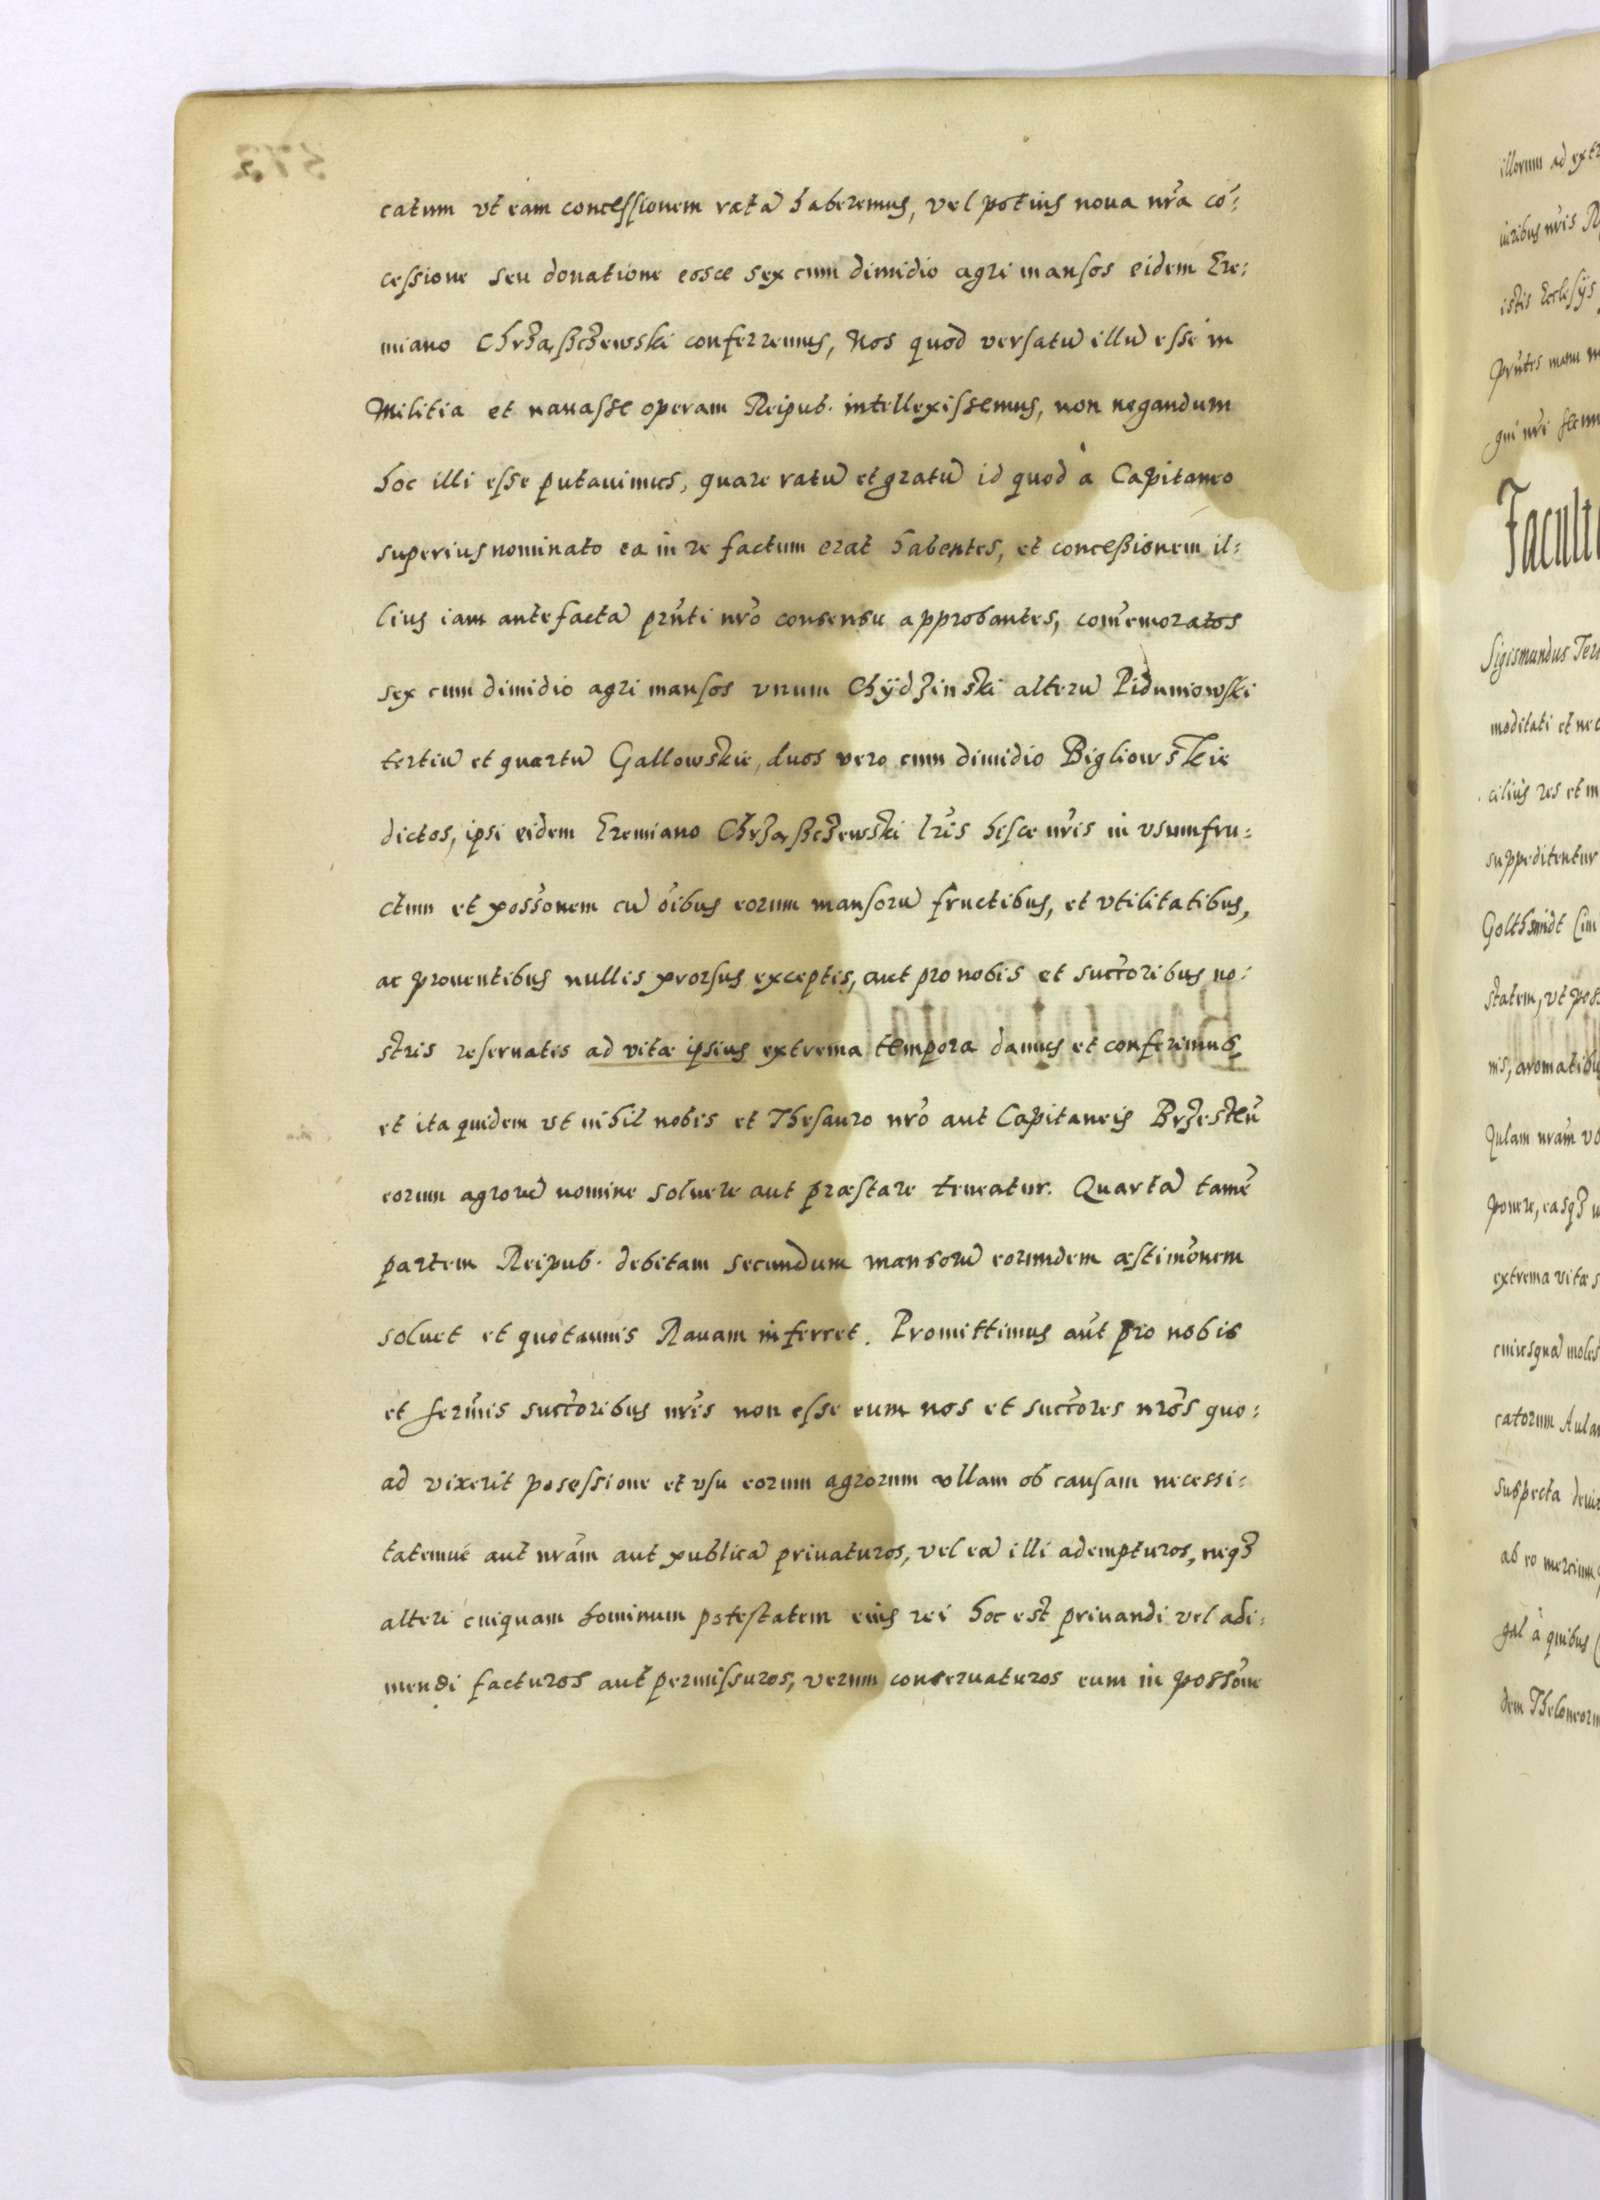 catum vt eam concessionem ratā haberemus, vel potius noua nr̃a cō:
cessione seu donatione eosce sex cum dimidio agri mansos eidem Ere:
miano Chrząßczewski conferremus, Nos quod versatū illū esse in
Militia et nauasse operam Reipub. intellexissemus, non negandum
hoc illi esse putauimus, quare ratū et gratū id quod à Capitaneo
superius nominato ea in re factum erat habentes, et conceßionem il:
lius iam ante factā pñti nr̃o consensu approbantes, com̃emoratos
sex cum dimidio agri mansos vnum Chÿdzinski alterū Piduniowski
tertiū et quartū Gallowskie, duos vero cum dimidio Bigliowskie
dictos, ipsi eidem Eremiano Chrząßczewski lr̃is hisce nr̃is in vsumfru:
ctum et possõnem cū õibus eorum mansorū fructibus, et vtilitatibus,
ac prouentibus nullis prorsus exceptis, aut pro nobis et succ̃oribus no:
stris reseruatis ad vitæ ipsius extrema tempora damus et conferimus,
et ita quidem vt nihil nobis et Thesauro nr̃o aut Capitaneis Brzesteñ
eorum agrorū nomine soluere aut præstare teneatur. Quartā tamẽ
partem Reipub. debitam secundum mansorū eorundem æstimõnem
soluet et quotannis Rauam inferret. Promittimus aũt pro nobis
et serm̃is succ̃oribus nr̃is non esse eum nos et succ̃ores nr̃os quo:
ad vixerit posessione et vsu eorum agrorum vllam ob causam necessi:
tatemue aut nr̃am aut publicā priuaturos, vel eā illi adempturos, neqȝ
alteri cuiquam hominum potestatem eius rei hoc est priuandi vel adi:
mendi facturos aut permissuros, verum conseruaturos eum in possõne
illorum ad
nr̃is
istis Ecclesÿs
pñtes manu
Sigismundus
moditati et
res et
suppeditentur
Golthsmidt
statem, vt
nis, aromatibus
nr̃am
ponere, easqȝ
extrema vitæ
catorum
suspecta
ab eo
gal à quibus
dem